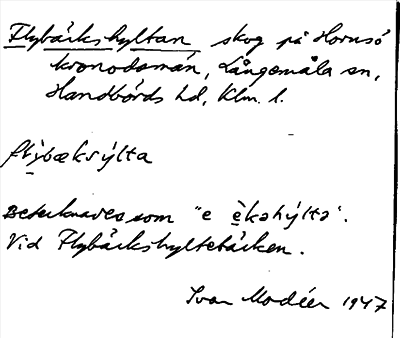 Flybäckshyltan skog på Hornsö
kronodomän, Långemåla sn,
Handbörds hd, Klm. l.
flỳbæksýlta
Beteknades som "e èkəhýltə".
Vid Flybäckshyltebäcken.
Ivar Modéer 1947